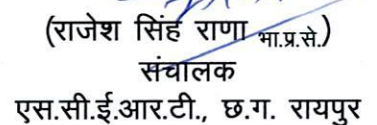 (राजेश सिंह राणा भा.प्र.से.)
संचालक
एस.सी.ई.आर.टी., छ.ग. रायपुर